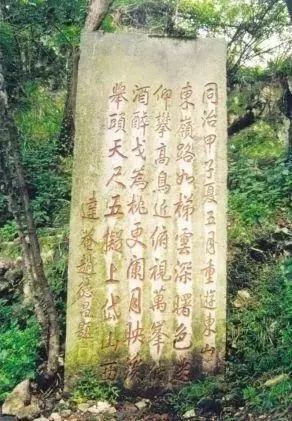 同治甲子夏五月重遊東山
東嶺路如梯雲深曙色
仰攀高鳥近俯視萬峯
酒醉戈為桃更闌月映
舉頭天尺五擬上岱山
達菴趙德題